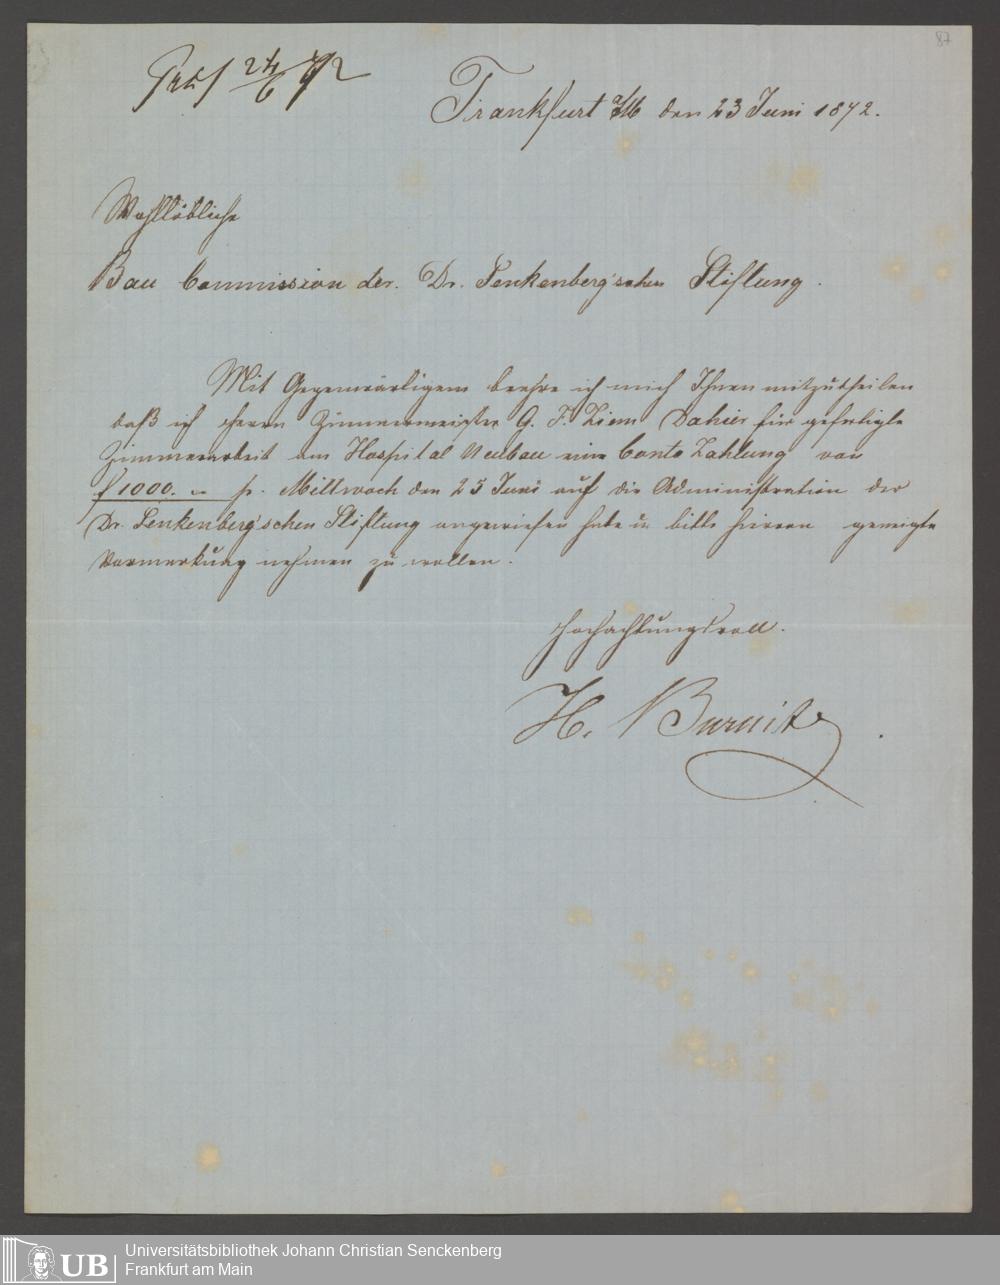 87
Präs 24/6 72
Frankfurt a/M den 23 Juni 1872.
Wohllöbliche
Bau Commission der Dr. Senkenberg'schen Stiftung.
Mit Gegenwärtigem beehre ich mich Ihnen mitzutheilen
daß ich Herrn Zimmermeister G. F. Ziem Dahier für gefertigte
Zimmerarbeit am Hospital Neubau eine Conto Zahlung von
f 1000. — pr. Mittwoch den 25 Juni auf die Administration der
Dr. Senkenberg'schen Stiftung angewiesen habe u. bitte hiervon geneigte
Vormerkung nehmen zu wollen.
Hochachtungsvoll.
H. Burnitz
UB
Universitätsbibliothek Johann Christian Senckenberg
Frankfurt am Main